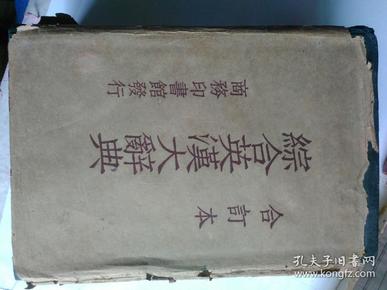 合訂本
綜合英漢大辭典
商務印書館發行
孔夫子旧书网